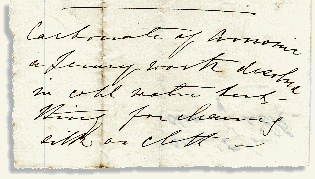 Carbonate of Amonia
a penny worth disolved
in cold water best
thing for cleaning
silk or cloth